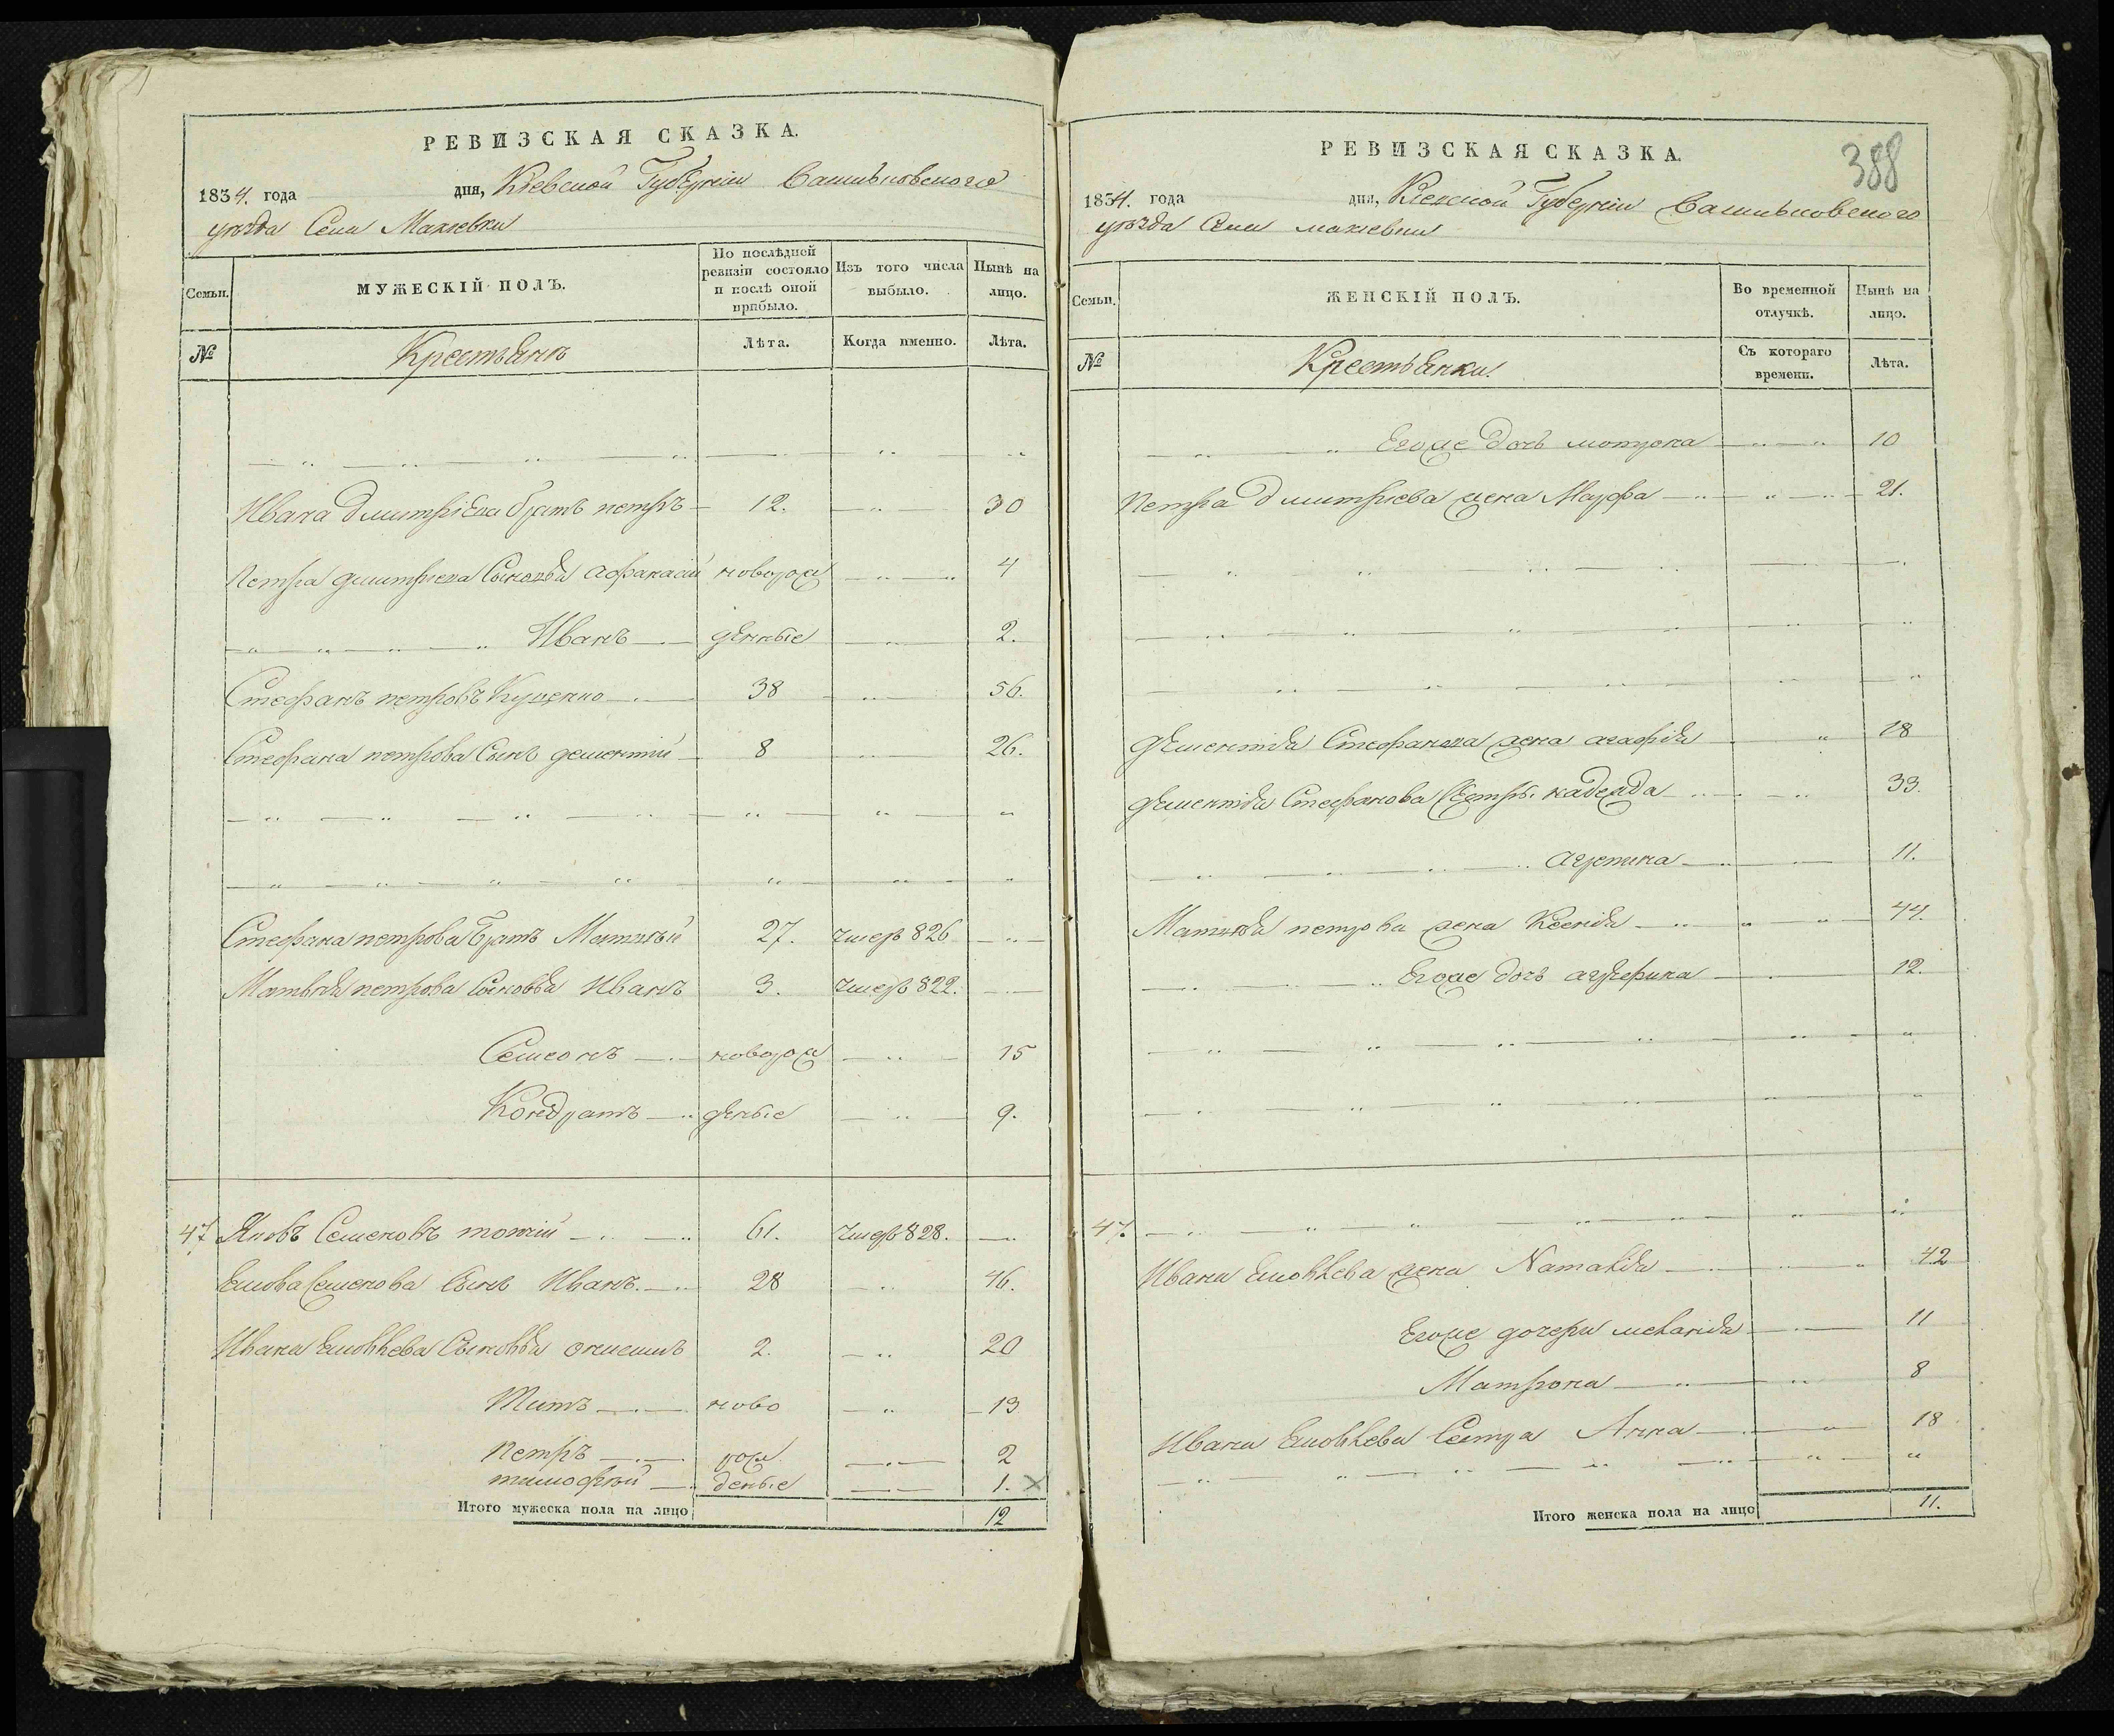 РЕВИЗСКАЯ СКАЗКА.
1834. года дня, Кіевской Губерніи Васильковского
уѣзда Села Макіевки
Семьи.
МУЖЕСКІЙ ПОЛЪ.
По послѣдней ревизіи состояло и послѣ оной прибыло.
Изъ того числа выбыло.
Нынѣ на лицо.
№
Крестьянъ
Лѣта.
Когда именно.
Лѣта.
Ивана дмитріева братъ петръ 12. 30
Петра дмитріева Сыновья афанасій новорож 4
Иванъ денные 2.
Стефанъ петровъ Куценко 38 56.
Стефана петрова Сынъ дементій 8 26.
Стефана петрова Братъ Матвѣй 27. умеръ 826
Матвѣя петрова Сыновья Иванъ 3. умеръ 822.
Семеонъ новорож 15
Кондратъ деные 9.
47 Яковъ Семеновъ 61. умеръ 828.
Якова Семенова Сынъ Иванъ 28 46.
Ивана Яковлева Сыновья 2. 20
Титъ ново 13
Петръ рож 2
тимофѣй деные 1. ×
Итого мужеска пола на лицо 12
РЕВИЗСКАЯ СКАЗКА.
388
1834. года дня, Кіевской Губерніи Васильковского
уѣзда Села макіевки
Семьи.
ЖЕНСКІЙ ПОЛЪ.
Во временной отлучкѣ.
Нынѣ на лицо.
№
Крестьянки
Съ котораго времени.
Лѣта.
Егоже дочь мотрона 10
Петра дмитріева жена Марфа 21.
дементія Стефанова жена агафія 18
дементія Стефанова Сестры надежда 33.
11.
Матвѣя петрова жена Ксенія 44.
Егоже дочь 12.
47.
Ивана Яковлева жена Наталія 42
Егоже дочери меланія 11
Матрона 8
Ивана Яковлева Сестра Анна 18
Итого женска пола на лицо 11.